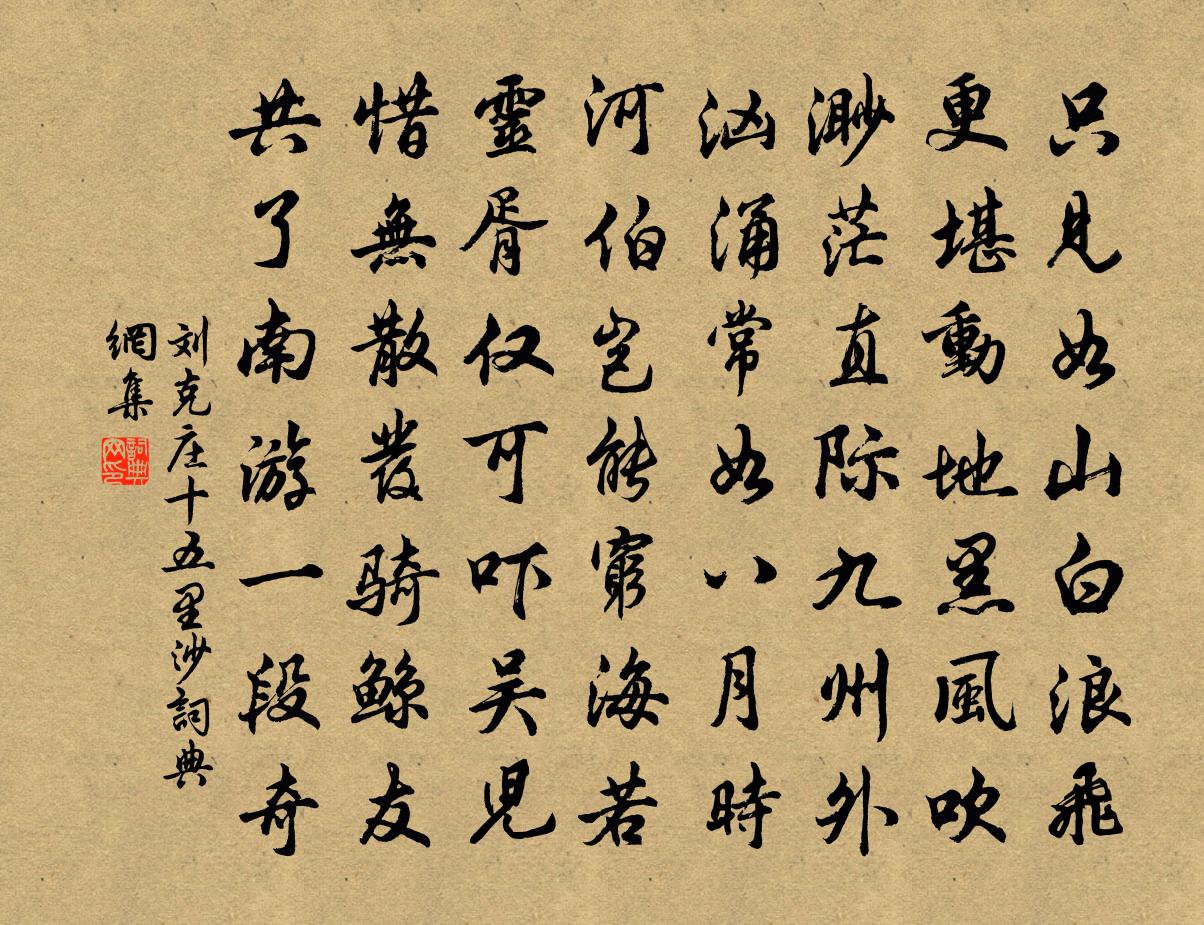 只見如山白浪飛
更堪動地黑風吹
渺茫直际九州外
汹涌常如八月時
河伯岂能窮海若
靈胥仅可吓吴児
惜無散發騎鲸友
共了南游一段奇
刘克庄十五里沙詞典
網集
詞典
网印